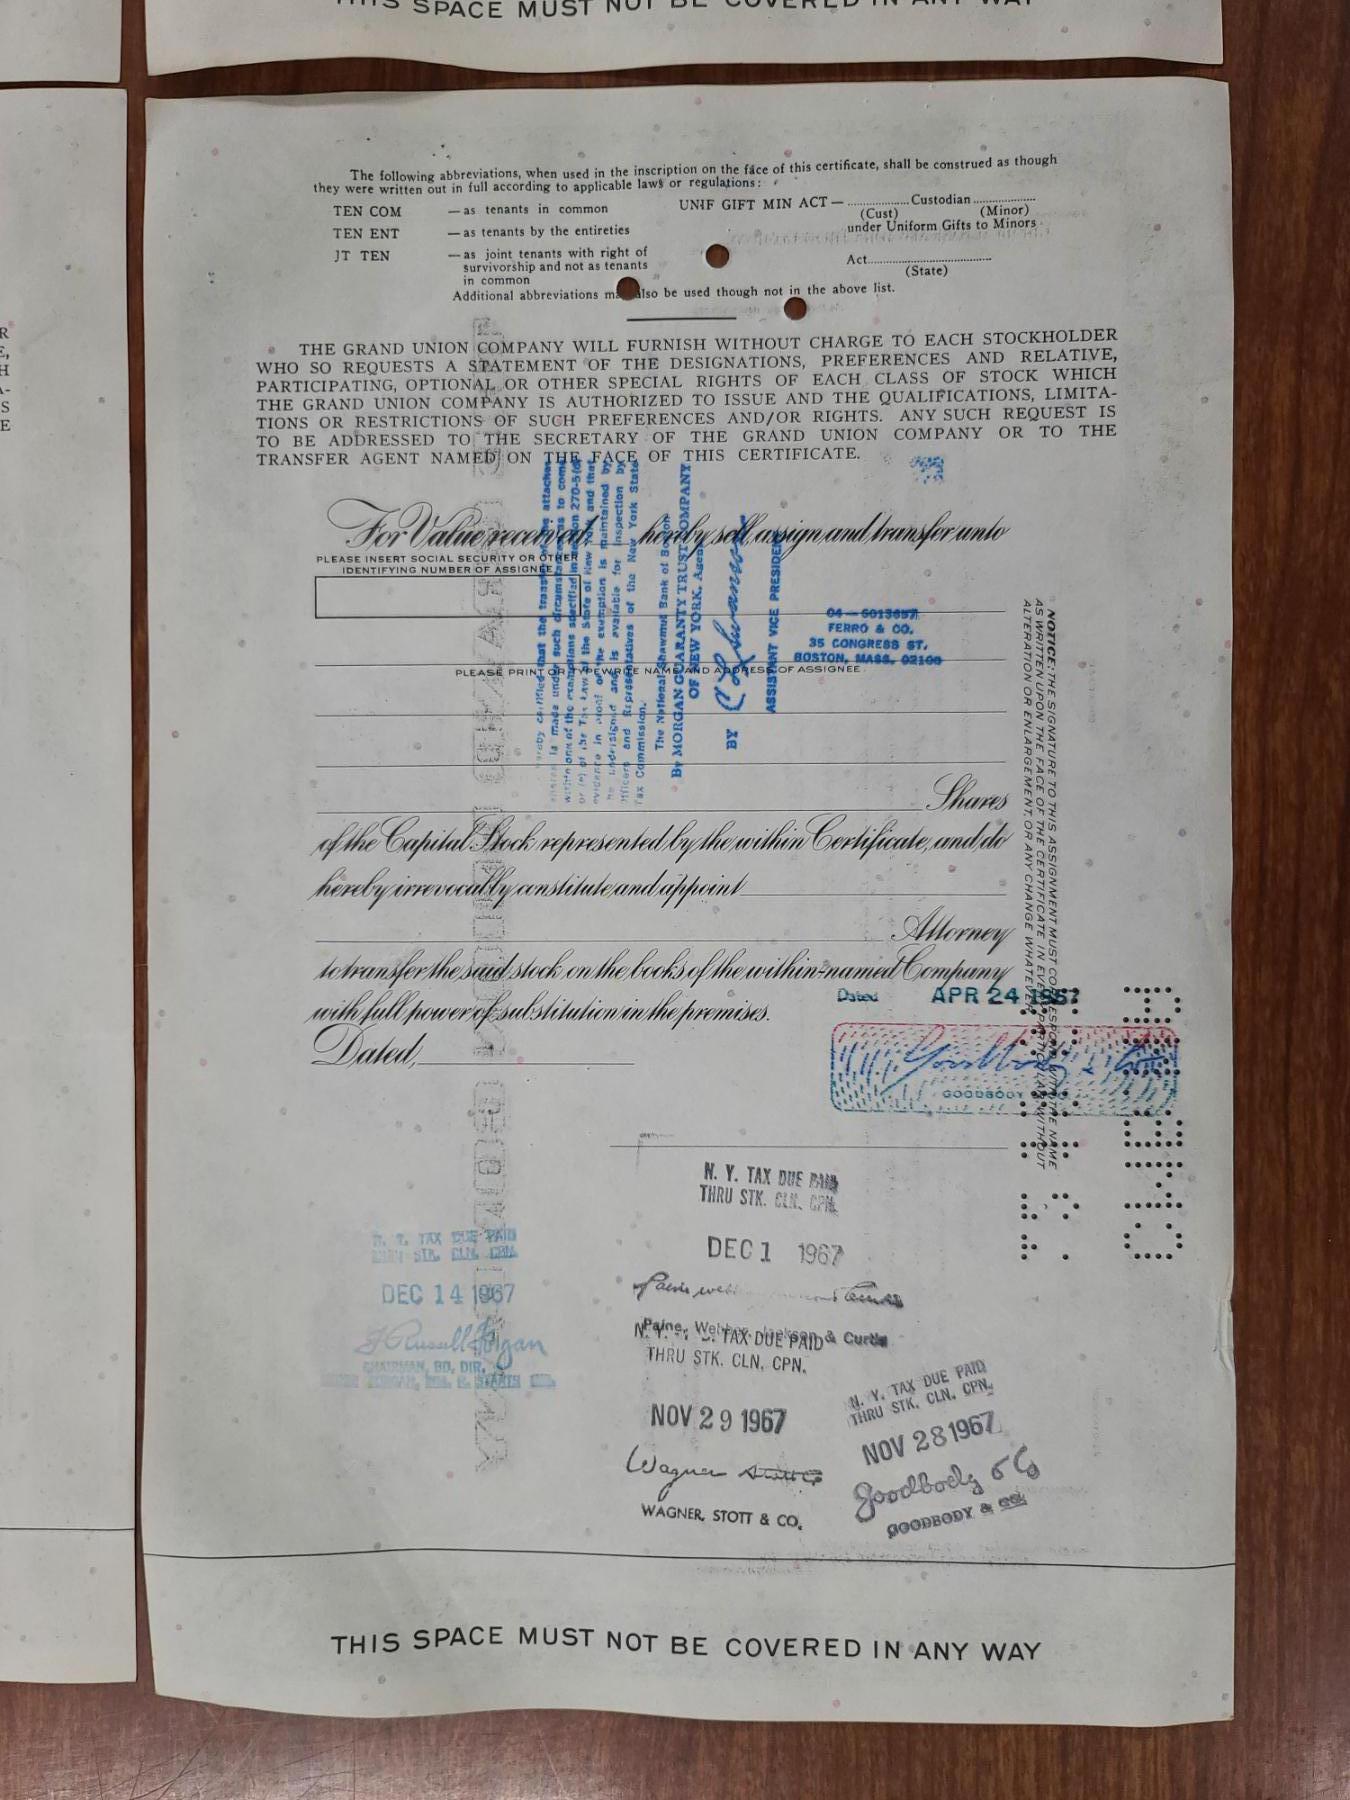 THIS SPACE MUST NOT BE COVERED IN ANY WAY
The following abbreviations, when used in the inscription on the face of this certificate, shall be construed as though
they were written out in full according to applicable laws or regulations:
TEN COM — as tenants in common
TEN ENT — as tenants by the entireties
JT TEN — as joint tenants with right of
survivorship and not as tenants
in common
UNIF GIFT MIN ACT — .................. Custodian ..................
(Cust) (Minor)
under Uniform Gifts to Minors
Act..............................
(State)
Additional abbreviations may also be used though not in the above list.
THE GRAND UNION COMPANY WILL FURNISH WITHOUT CHARGE TO EACH STOCKHOLDER
WHO SO REQUESTS A STATEMENT OF THE DESIGNATIONS, PREFERENCES AND RELATIVE,
PARTICIPATING, OPTIONAL OR OTHER SPECIAL RIGHTS OF EACH CLASS OF STOCK WHICH
THE GRAND UNION COMPANY IS AUTHORIZED TO ISSUE AND THE QUALIFICATIONS, LIMITA-
TIONS OR RESTRICTIONS OF SUCH PREFERENCES AND/OR RIGHTS. ANY SUCH REQUEST IS
TO BE ADDRESSED TO THE SECRETARY OF THE GRAND UNION COMPANY OR TO THE
TRANSFER AGENT NAMED ON THE FACE OF THIS CERTIFICATE.
For Value received, hereby sell, assign and transfer unto
PLEASE INSERT SOCIAL SECURITY OR OTHER
IDENTIFYING NUMBER OF ASSIGNEE
FERRO & CO.
35 CONGRESS ST.
BOSTON, MASS.
PLEASE PRINT OR TYPEWRITE NAME AND ADDRESS OF ASSIGNEE
hereby certified that the transfer of the attached
shares is made under such circumstances as to come
within one of the exemptions specified in section 270-5
of the Tax Law of the State of New York and that
evidence in proof of the exemption is maintained by
the undersigned and is available for inspection by
Officers and Representatives of the New York State
Tax Commission.
The National Shawmut Bank of Boston
By MORGAN GUARANTY TRUST COMPANY
OF NEW YORK, Agent
BY
ASSISTANT VICE PRESIDENT
Shares
of the Capital Stock represented by the within Certificate, and do
hereby irrevocably constitute and appoint
Attorney
to transfer the said stock on the books of the within-named Company
with full power of substitution in the premises.
Dated,
Dated APR 24 1967
GOODBODY
NOTICE: THE SIGNATURE TO THIS ASSIGNMENT MUST CORRESPOND WITH THE NAME
AS WRITTEN UPON THE FACE OF THE CERTIFICATE IN EVERY PARTICULAR, WITHOUT
ALTERATION OR ENLARGEMENT, OR ANY CHANGE WHATEVER.
N. Y. TAX DUE PAID
THRU STK. CLN. CPN.
DEC 1 1967
Paine, Webber, Jackson & Curtis
N. Y. TAX DUE PAID
THRU STK. CLN. CPN.
DEC 14 1967
J Russell Forgan
CHAIRMAN, BD. DIR.
N. Y. TAX DUE PAID
THRU STK. CLN. CPN.
NOV 29 1967
Wagner Stott
WAGNER, STOTT & CO.
N. Y. TAX DUE PAID
THRU STK. CLN. CPN.
NOV 28 1967
Goodbody & Co
GOODBODY & CO.
THIS SPACE MUST NOT BE COVERED IN ANY WAY